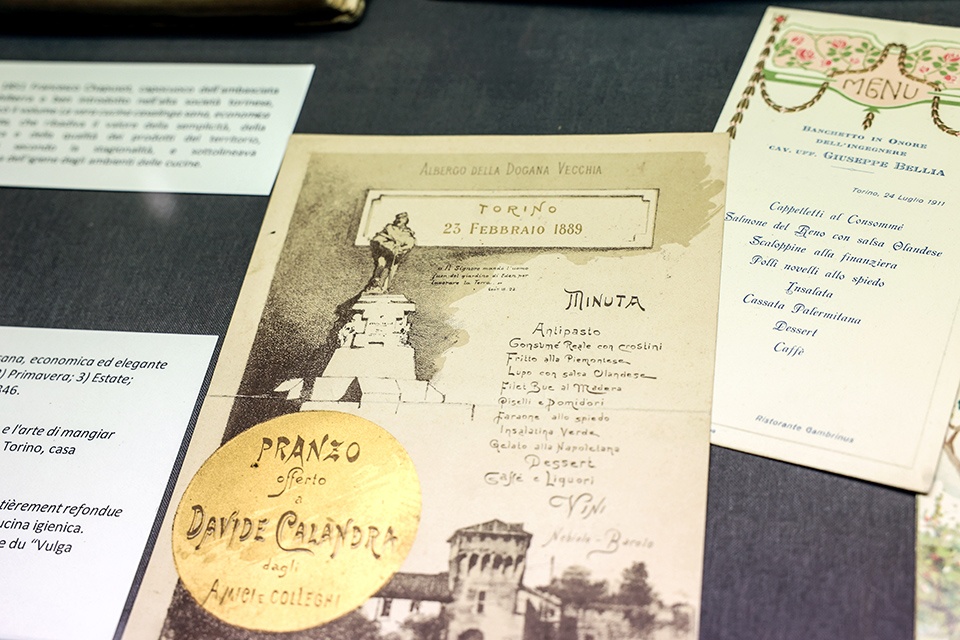 1851 Francesco Chapusot, capocuoco dell'ambasciata
e ben introdotto nell'alta società torinese,
che ribadiva il valore della semplicità, della
e della qualità dei prodotti del territorio,
secondo la stagionalità, e sottolineava
dell'igiene degli ambienti delle cucine.
ana, economica ed elegante
) Primavera; 3) Estate;
846.
e l'arte di mangiar
Torino, casa
tièrement refondue
ucina igienica.
e du "Vulga
ALBERGO DELLA DOGANA VECCHIA
TORINO
23 FEBBRAIO 1889
Il Signore mandò l'uomo
fuor del giardino di Eden per
lavorare la Terra
MINUTA
Antipasto
Consumé Reale con crostini
Fritto alla Piemontese
Lupo con salsa Olandese
Filet Bue al Madera
Piselli e Pomidori
Faraone allo spiedo
Insalatina Verde
Gelato alla Napoletana
Dessert
Caffè e Liquori
VINI
Nebiolo - Barolo
PRANZO
offerto
a
DAVIDE CALANDRA
dagli
AMICI E COLLEGHI
MENU
BANCHETTO IN ONORE
DELL'INGEGNERE
CAV. UFF. GIUSEPPE BELLIA
Torino, 24 Luglio 1911
Cappelletti al Consommé
Salmone del Reno con salsa Olandese
Scaloppine alla finanziera
Polli novelli allo spiedo
Insalata
Cassata Palermitana
Dessert
Caffè
Ristorante Gambrinus